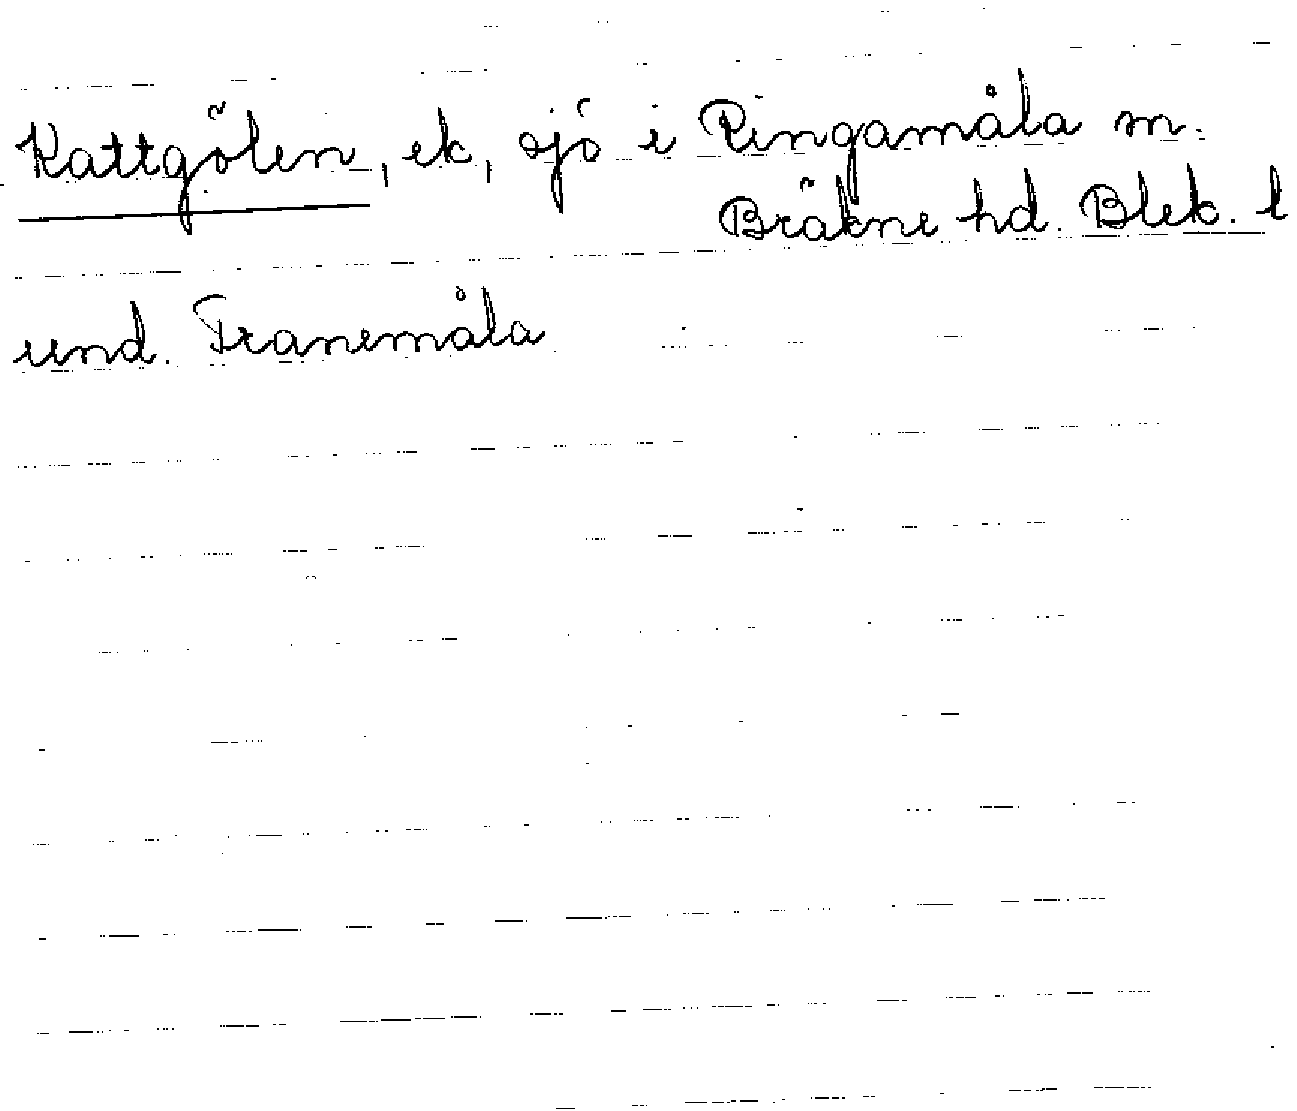 Kattgölen, ek, sjö i Ringamåla sn.
Bräkne hd. Blek. l
und. Tranemåla